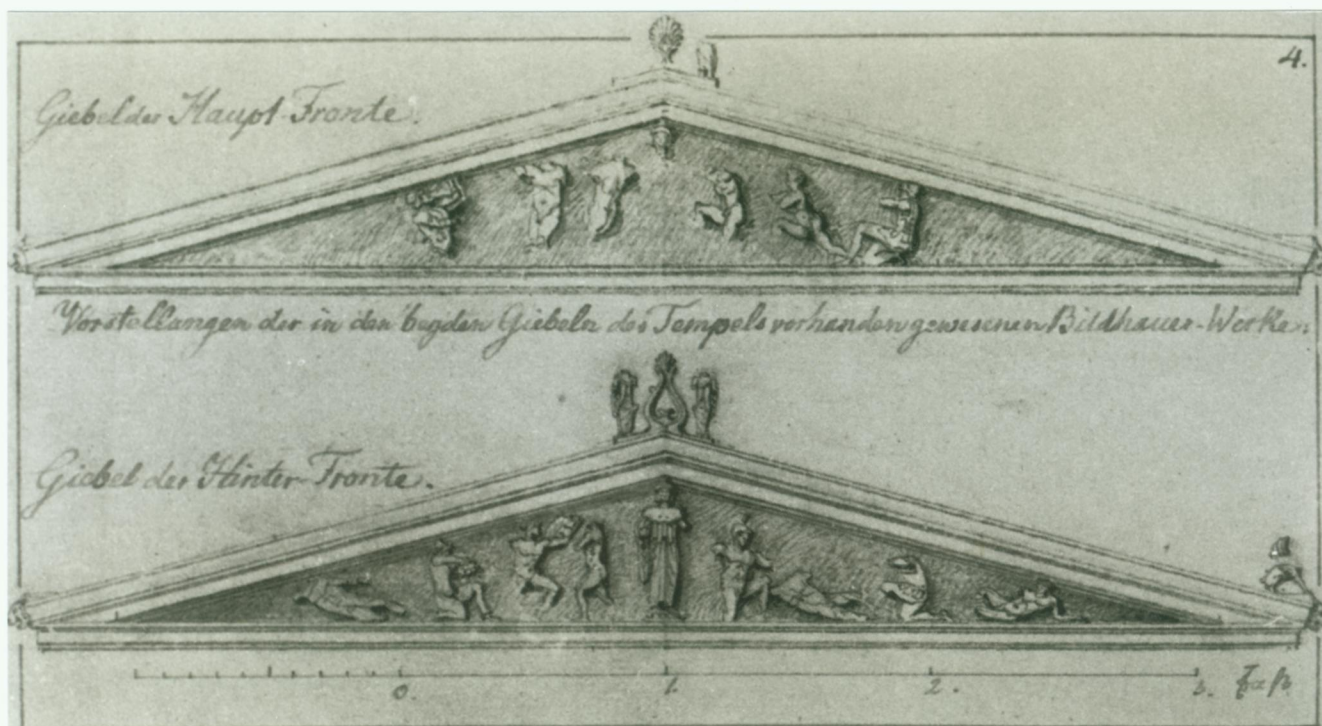 4.
Giebel der Haupt-Fronte.
Vorstellungen der in den beyden Giebeln des Tempels vorhanden gewesenen Bildhauer-Werke.
Giebel der Hinter-Fronte.
0. 1. 2. 3.